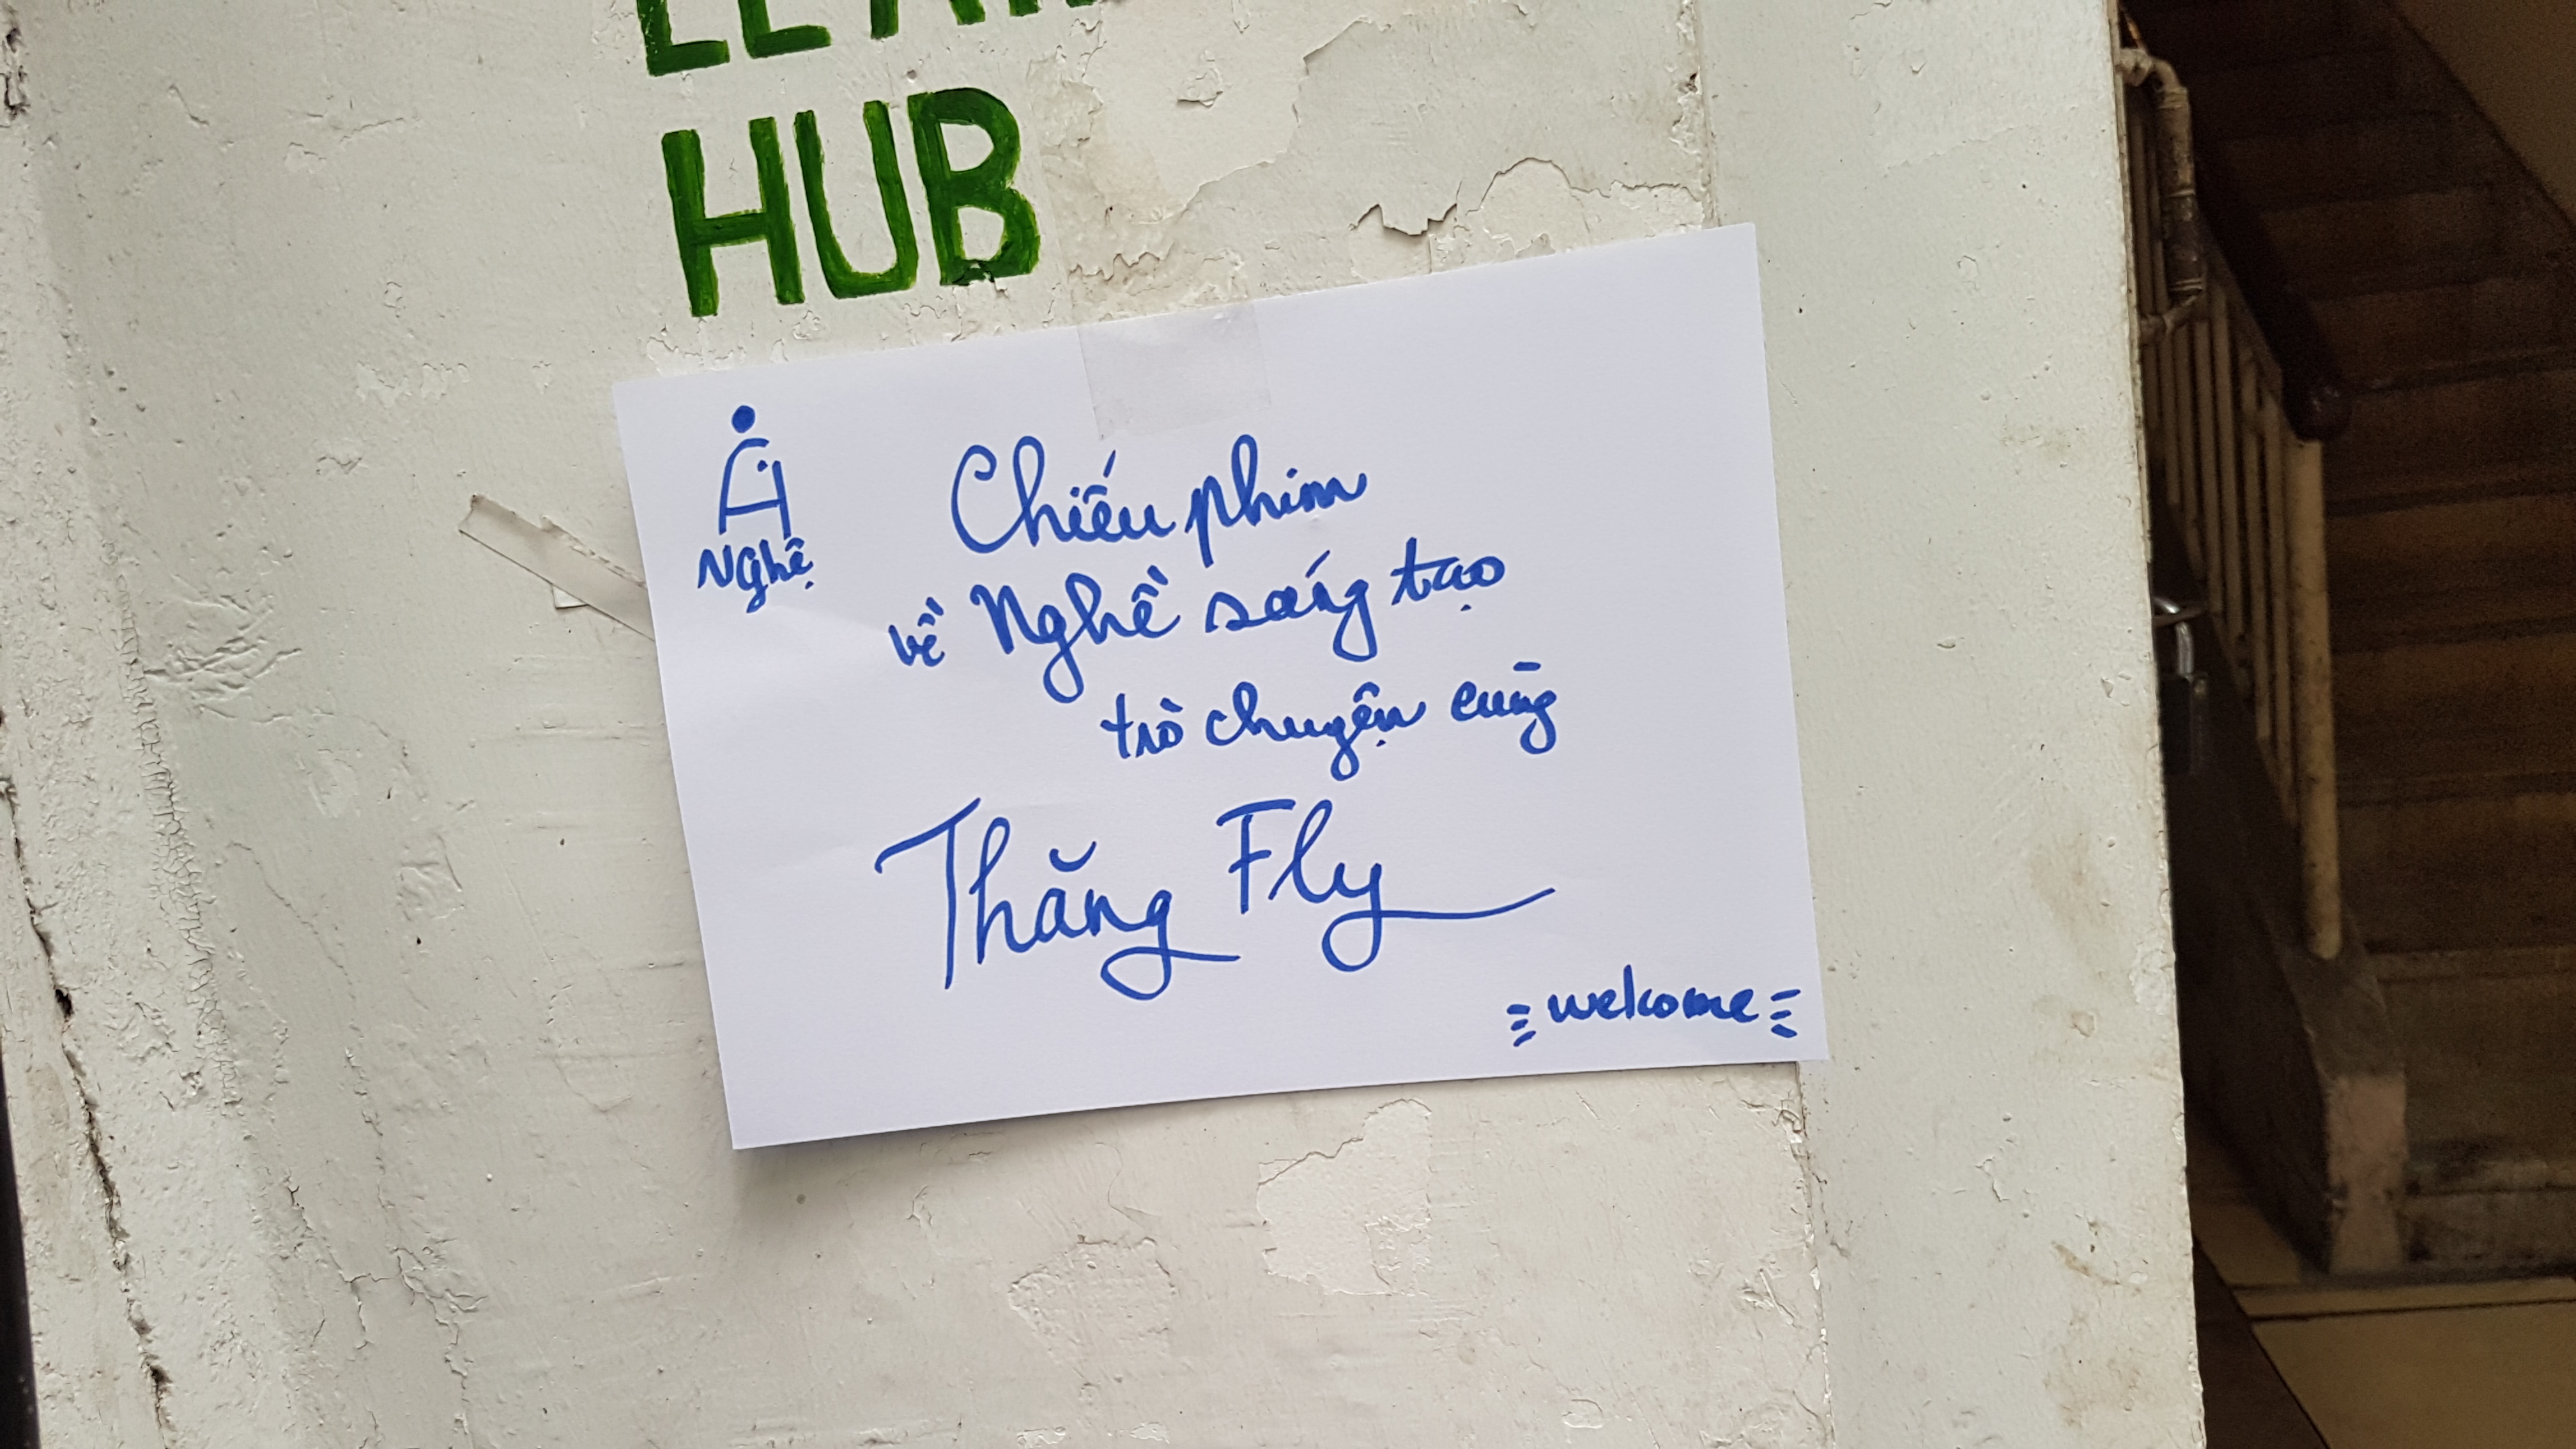 HUB
Nghệ
Chiếu phim
về Nghề sáng tạo
trò chuyện cùng
Thăng Fly
welcome